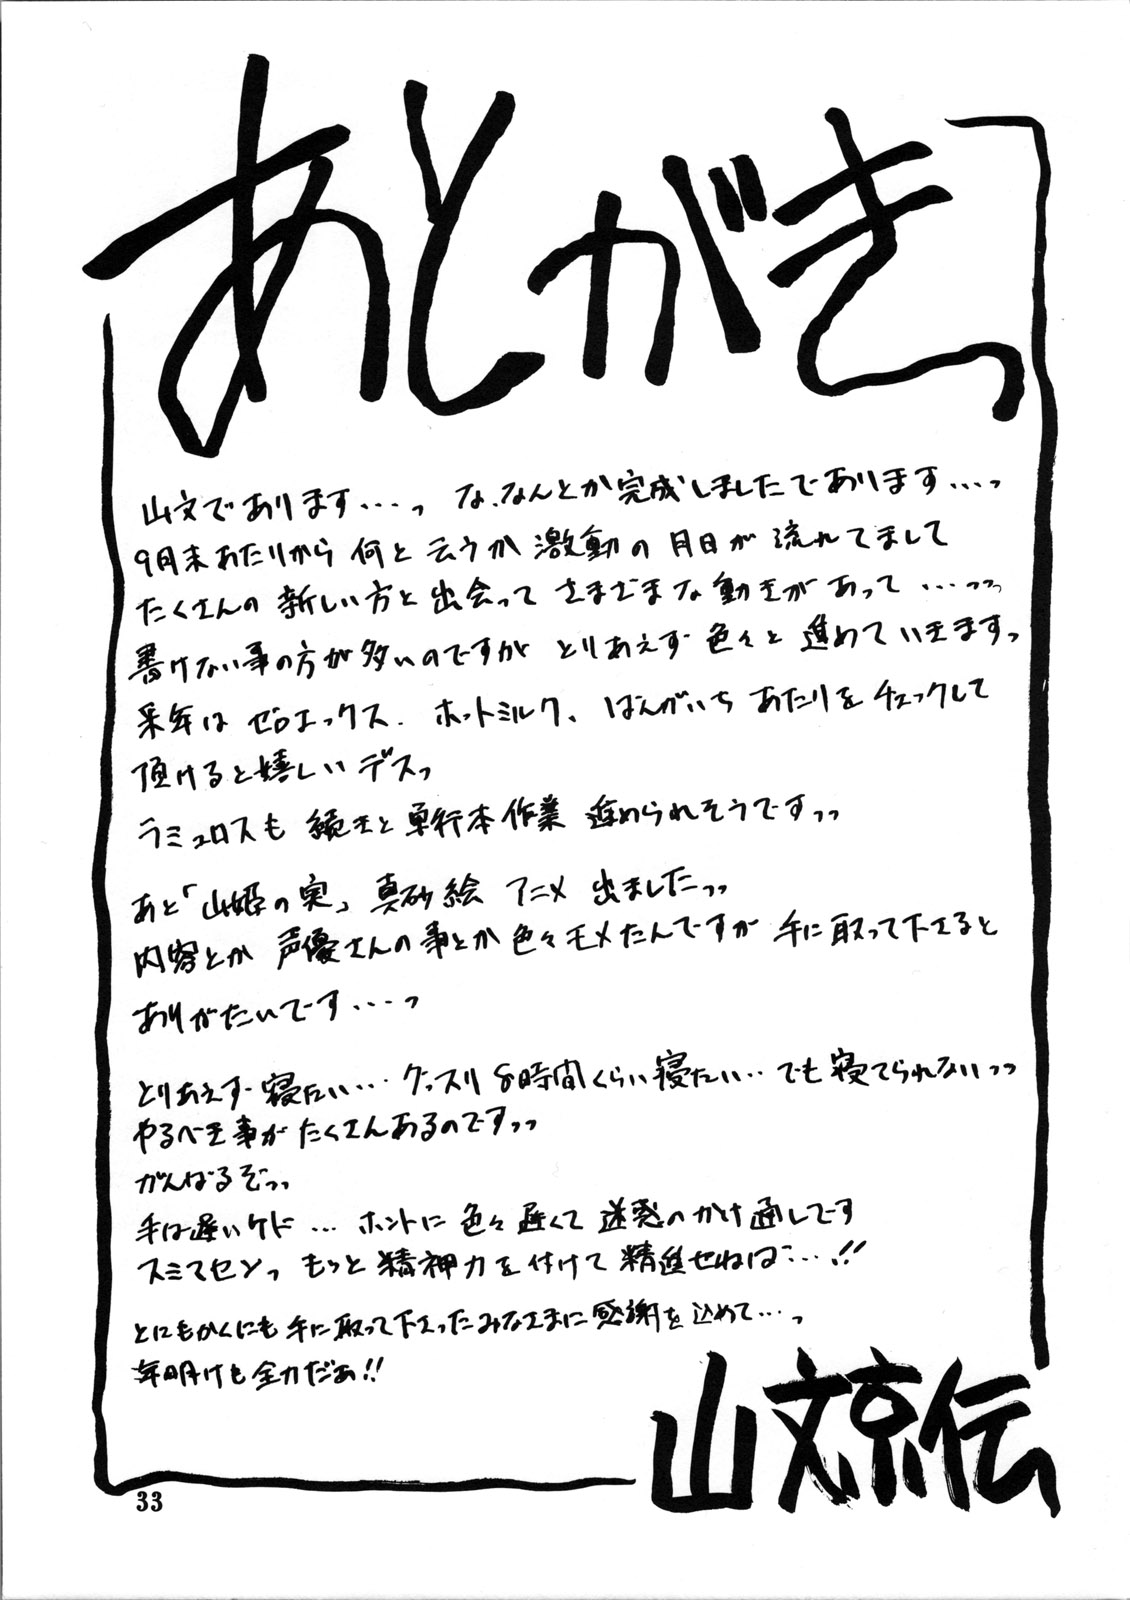 あとがきっ
山文であります・・・っ な、なんとか完成しましたであります・・・っ
9月末あたりから何と云うか激動の月日が流れてまして
たくさんの新しい方と出会ってさまざまな動きがあって・・・っっっ
書けない事の方が多いのですがとりあえず色々と進めていきますっ
来年はゼロエックス、ホットミルク、ばんがいちあたりをチェックして
頂けると嬉しいデスっ
ラミュロスも続きと単行本作業進められそうですっっ
あと「山姫の実」真砂絵アニメ出ましたっっ
内容とか声優さんの事とか色々モメたんですが手に取って下さると
ありがたいです・・・っ
とりあえず寝たい・・・グッスリ8時間くらい寝たい・・でも寝てられないっっ
やるべき事がたくさんあるのですっっ
がんばるぞっっ
手は遅いケド・・・ホントに色々遅くて迷惑のかけ通しです
スミマセンっ もっと精神力を付けて精進せねば・・・!!
とにもかくにも手に取って下さったみなさまに感謝を込めて・・・っ
年明けも全力だぁ!!
山文京伝
33